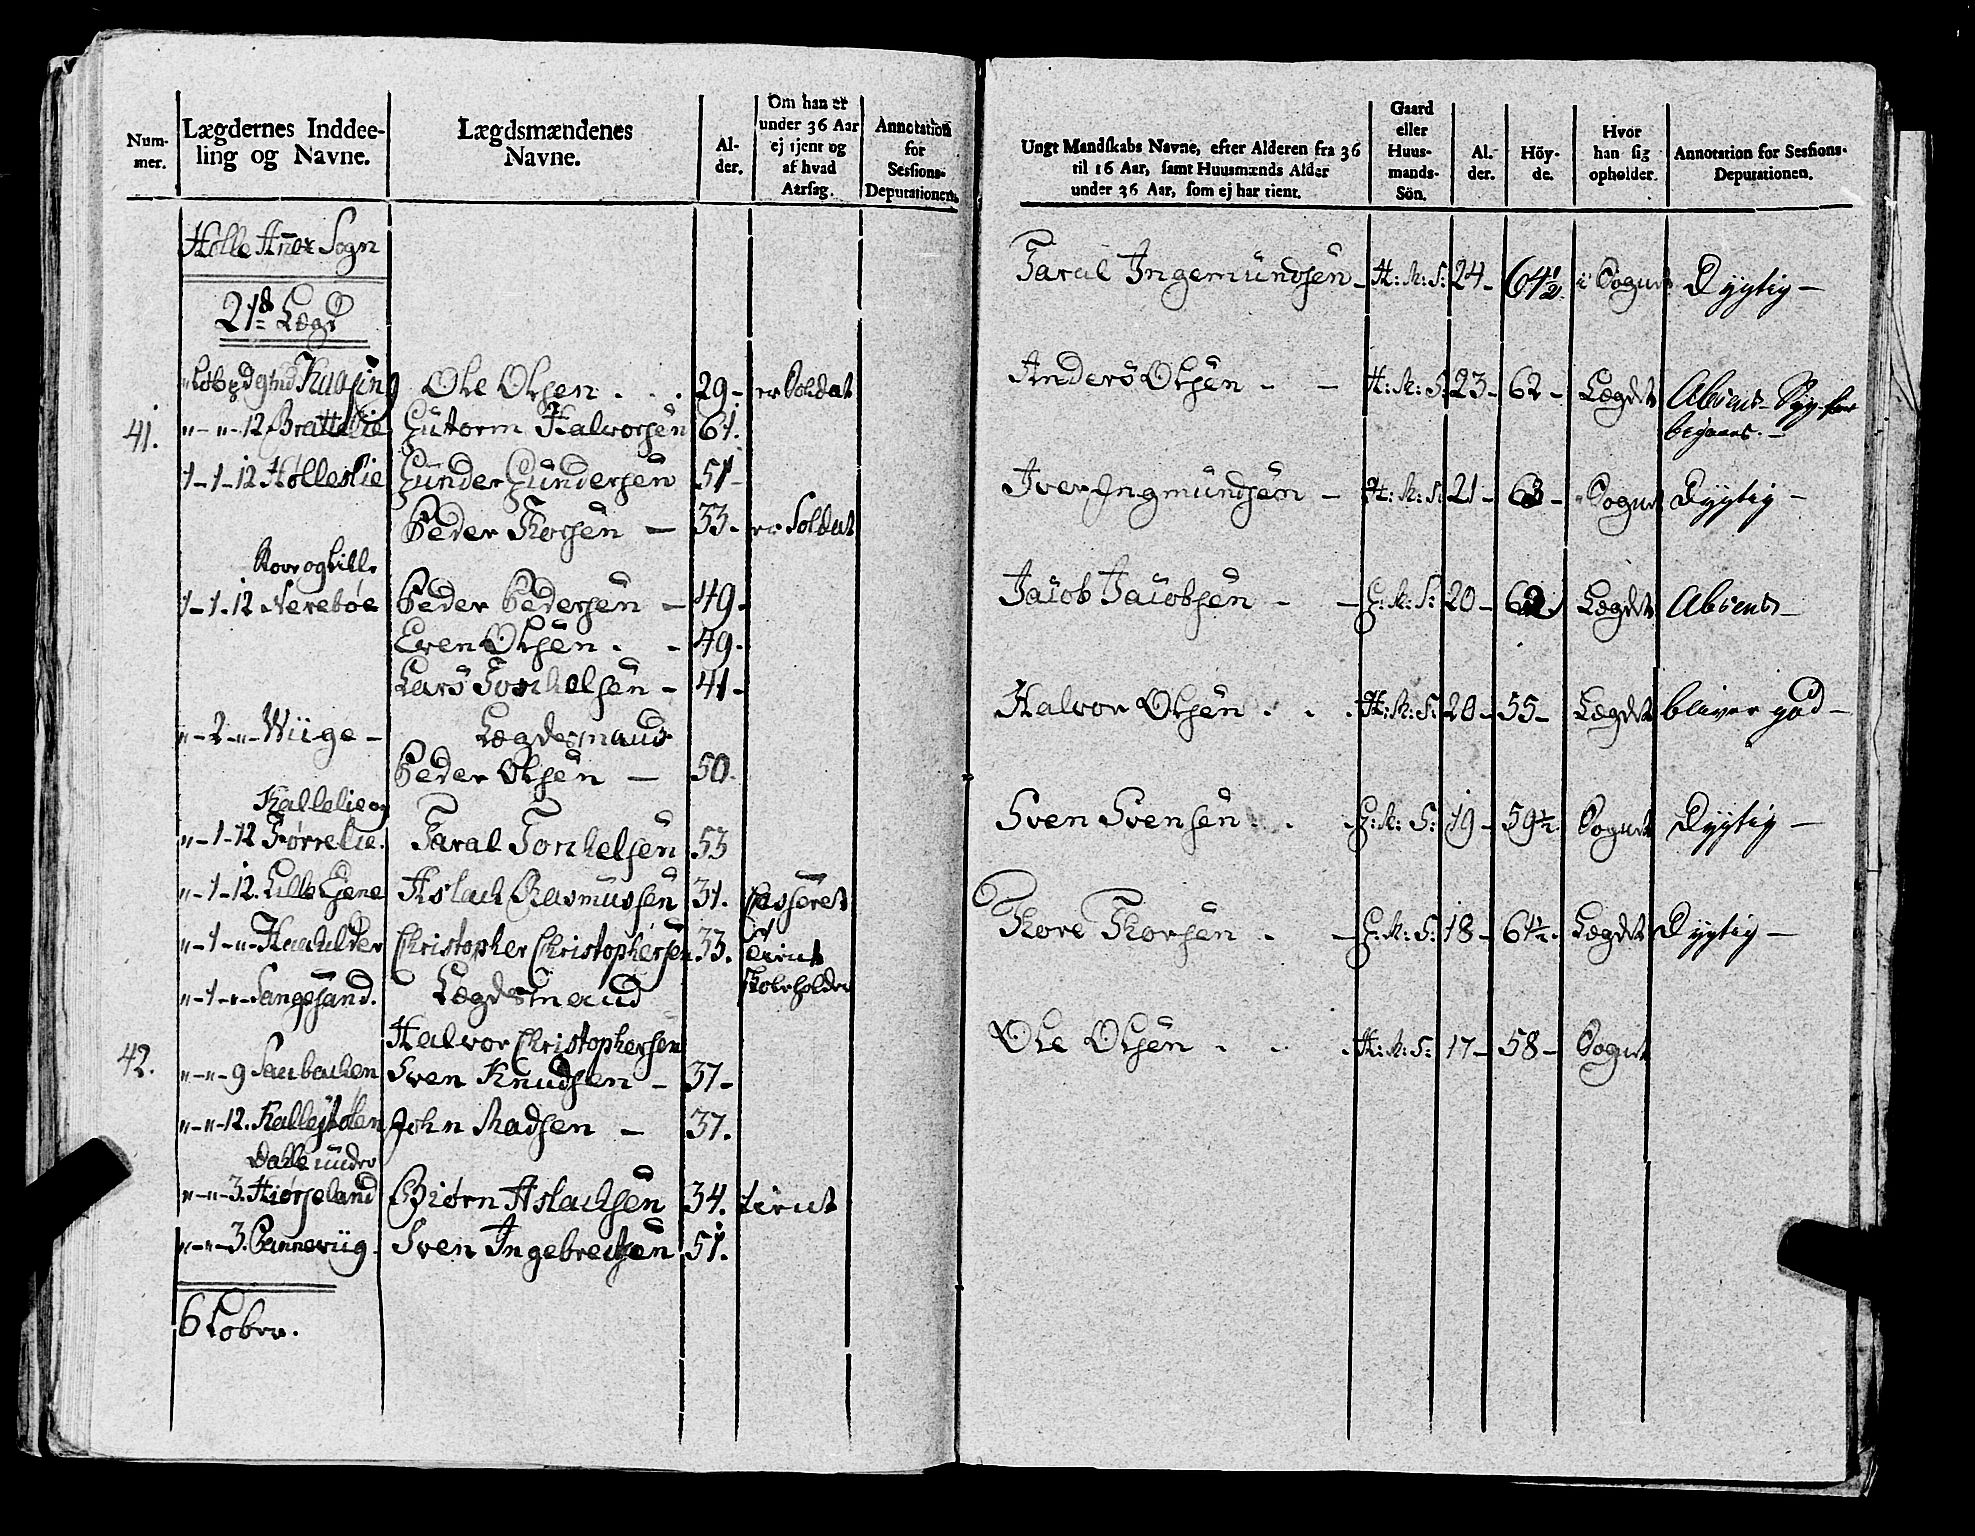 Num-
mer.
Lægdernes Inddee-
ling og Navne.
Lægdsmændenes
Navne.
Al-
der.
Om han er
under 36 Aar
ej tjent og
af hvad
Aarsag.
Annotation
for
Sessions-
Deputationen.
Holle Anex Sogn
21de Lægd
Ole Olsen . . . 29 - er Soldat
41. " - " - 12 Brattelie Gutorm Halvorsen 61.
1 - 1 - 12 Hølleslie Gunder Gundersen 51 -
Peder Torsen - 33 - er Soldat
1 - 1 - 12 Nerebøe Peder Pedersen - 49 -
Even Olsen . - 49 -
Lars Torkelsen - 41 -
" - 2 - " - Wiige - Lægdsmand
Peder Olsen - 50 -
Kallelie og
" - 1 - 12 Tørrelie. Taral Torkelsen 53
" - 1 - 12. Lille Ejene Aslach Rasmussen 31. Casseret
" - 1 - " - Haahelder Christopher Christophersen 33. tient
" - 1 - " - Sangesand. Lægdsmand
Halvor Christophersen
42. " - " - 9 Saubachen Sven Knudsen - 37 -
" - " - 12. John Madsen - 37.
Dahle under
" - " - 3. Hiørseland Biørn Aslachsen 34. tient
" - " - 3. Sven Ingebrechsen 51.
6 Lober.
Ungt Mandskabs Navne, efter Alderen fra 36
til 16 Aar, samt Huusmænds Alder
under 36 Aar, som ej har tient.
Gaard
eller
Huus-
mands-
Sön.
Al-
der.
Höy-
de.
Hvor
han sig
opholder.
Annotation for Sessions-
Deputationen.
Taral Ingemundsen - H: M: S: 24 - 64 1/2 i Sognet Dygtig -
Anders Olsen - - H: M: S: 23 - 62 - Lægdet Absens -
Iver Ingmundsen - H: M: S: 21 - 63 - Sognet Dygtig -
Jacob Jacobsen - - G: M: S: 20 - 62 Lægdet Absens -
Halvor Olsen . . . H: M: S: 20 - 55 - Lægdet bliver god -
Sven Svensen . . . G: M: S: 19 - 59 1/2. Sognet Dygtig -
Tore Torsen . - G: M: S: 18 - 61 1/2. Lægdet Dygtig -
Ole Olsen . . . H: M: S: 17 - 58 - Sognet